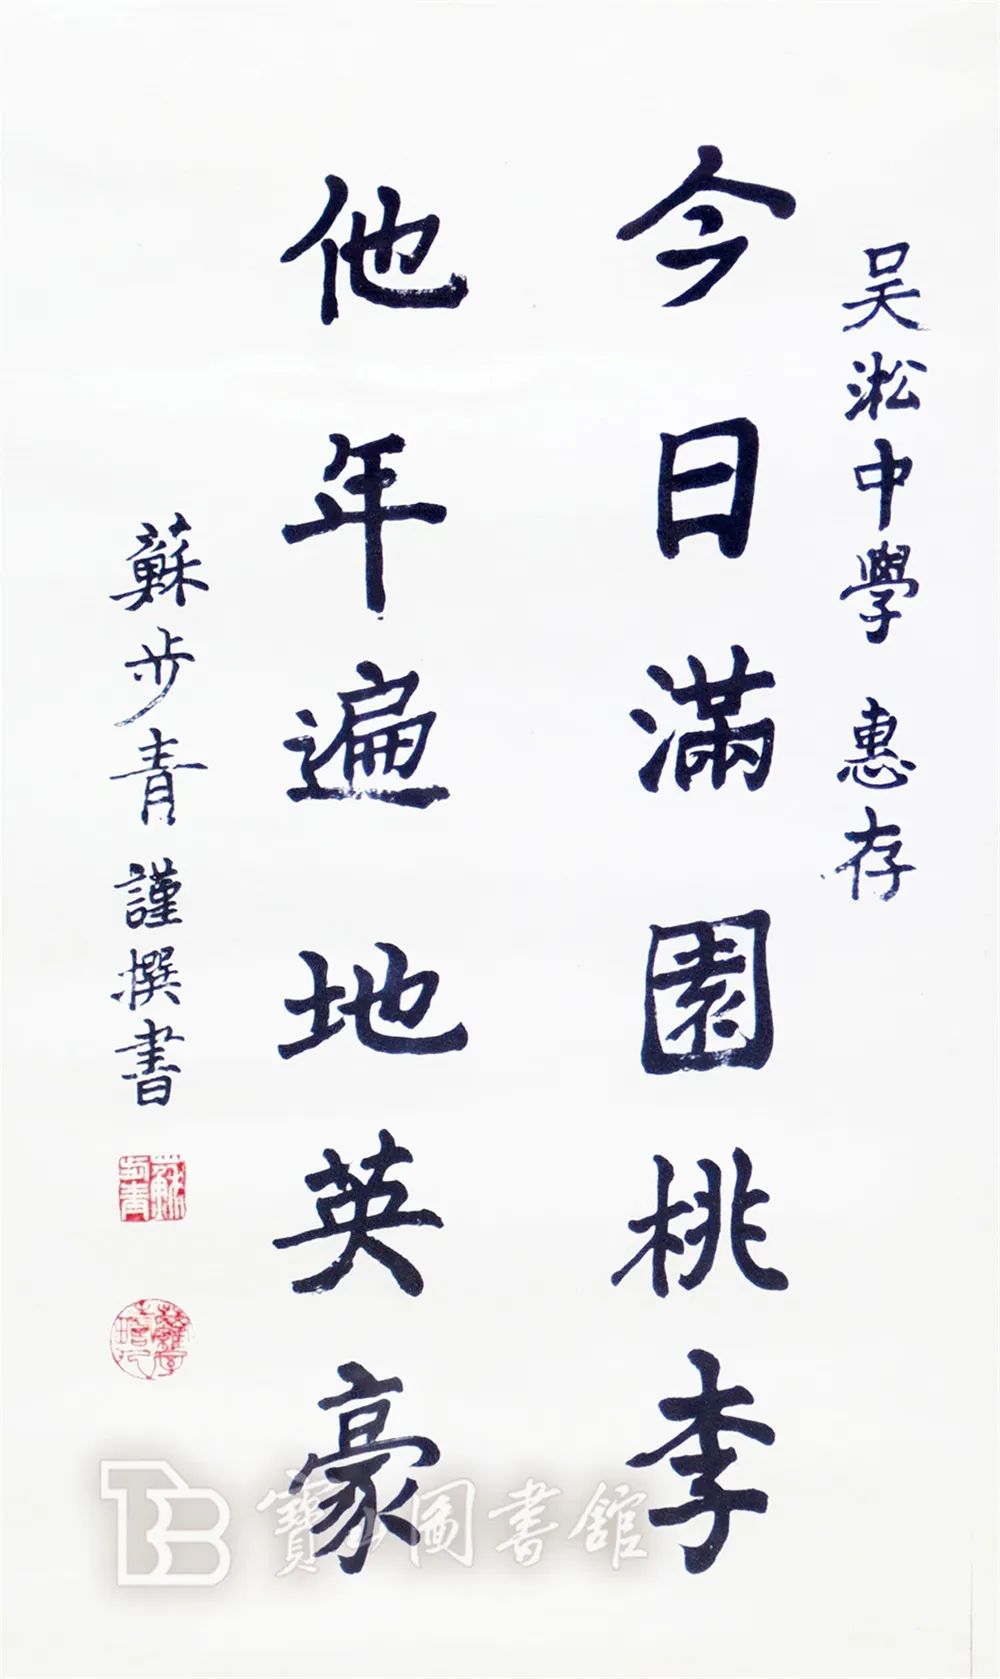 吴淞中學 惠存
今日滿園桃李
他年遍地英豪
蘇步青 謹撰書
蘇步青
寶山圖書館